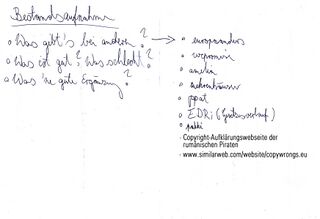 Bestandsaufnahme
• Was gibt's bei anderen? →
• Was ist gut? Was schlecht?
• Was 'ne gute Ergänzung?
• europaanders
• wepromis
• amelia
•
• ppat
• EDRi (
•
• Copyright-Aufklärungswebseite der
rumänischen Piraten
• www.similarweb.com/website/copywrongs.eu